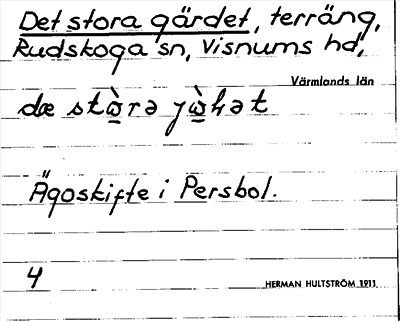 Det stora gärdet, terräng,
Rudskoga sn, Visnums hd,
Värmlands län
Ägoskifte i Persbol.
4
HERMAN HULTSTRÖM 1911